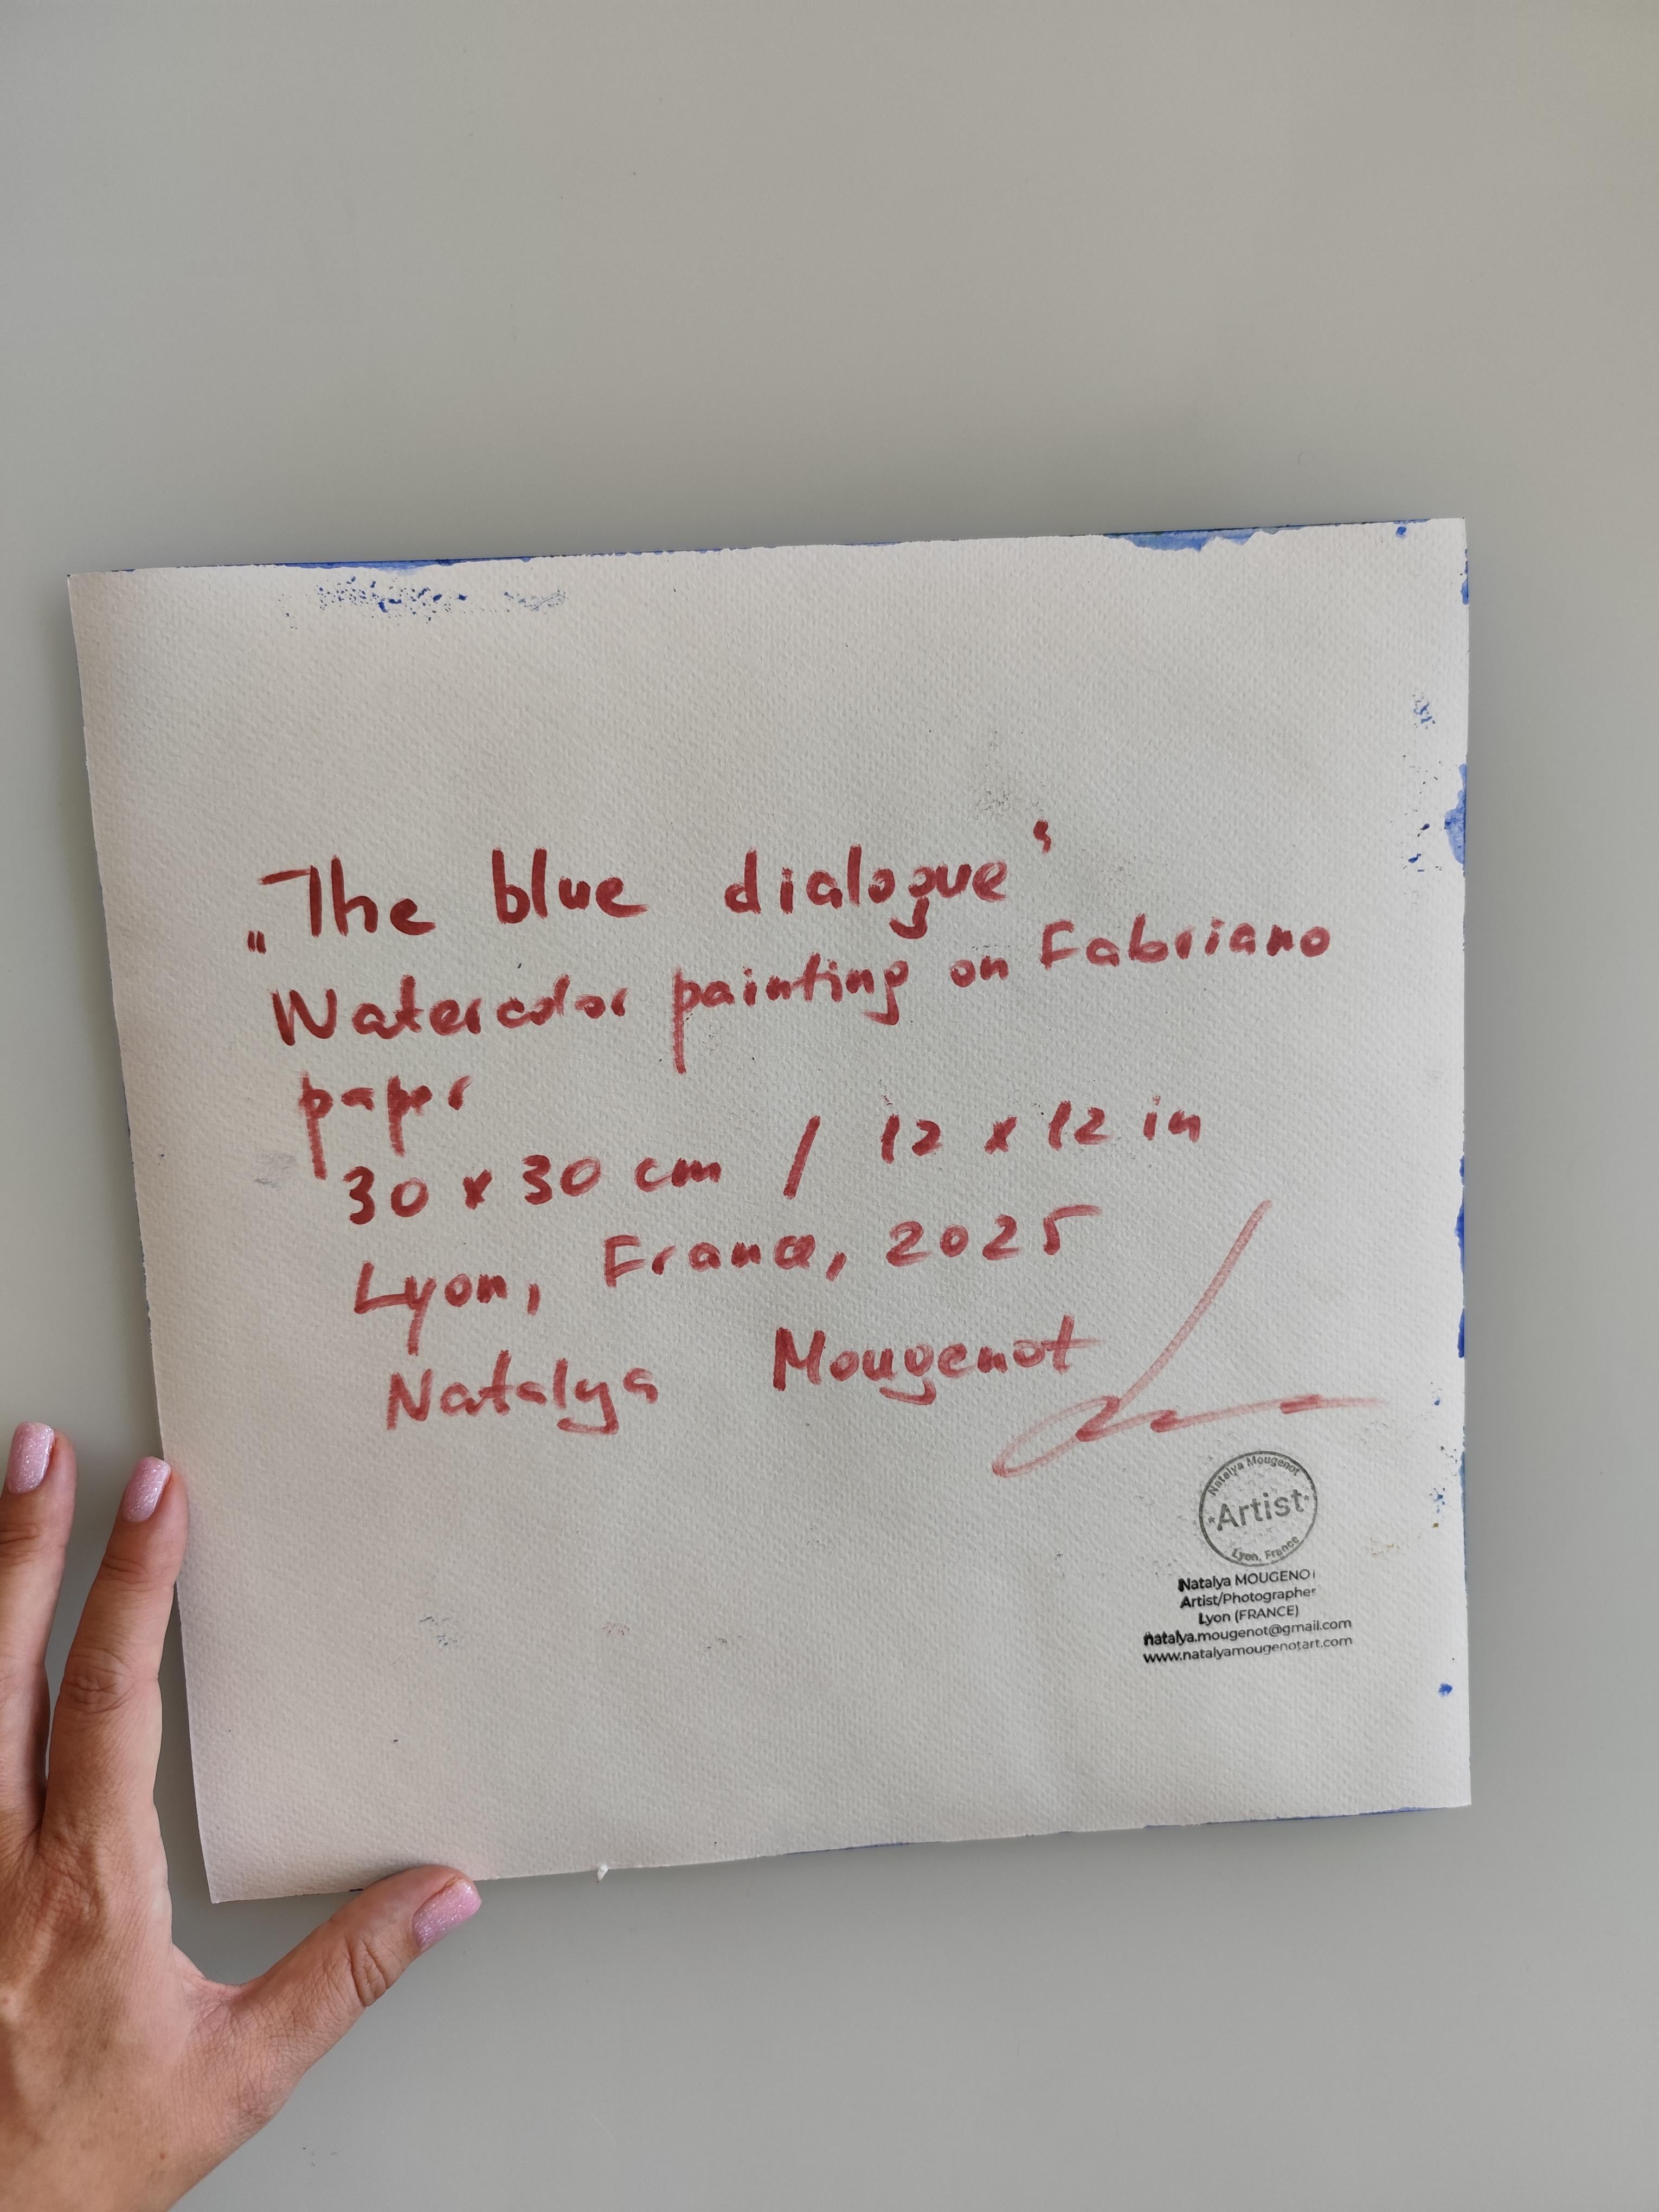 „The blue dialogue“
Watercolor painting on Fabriano
paper
30 x 30 cm / 12 x 12 in
Lyon, France, 2025
Natalya Mougenot
Natalya Mougenot
*Artist*
Lyon, France
Natalya MOUGENOT
Artist/Photographer
Lyon (FRANCE)
natalya.mougenot@gmail.com
www.natalyamougenotart.com